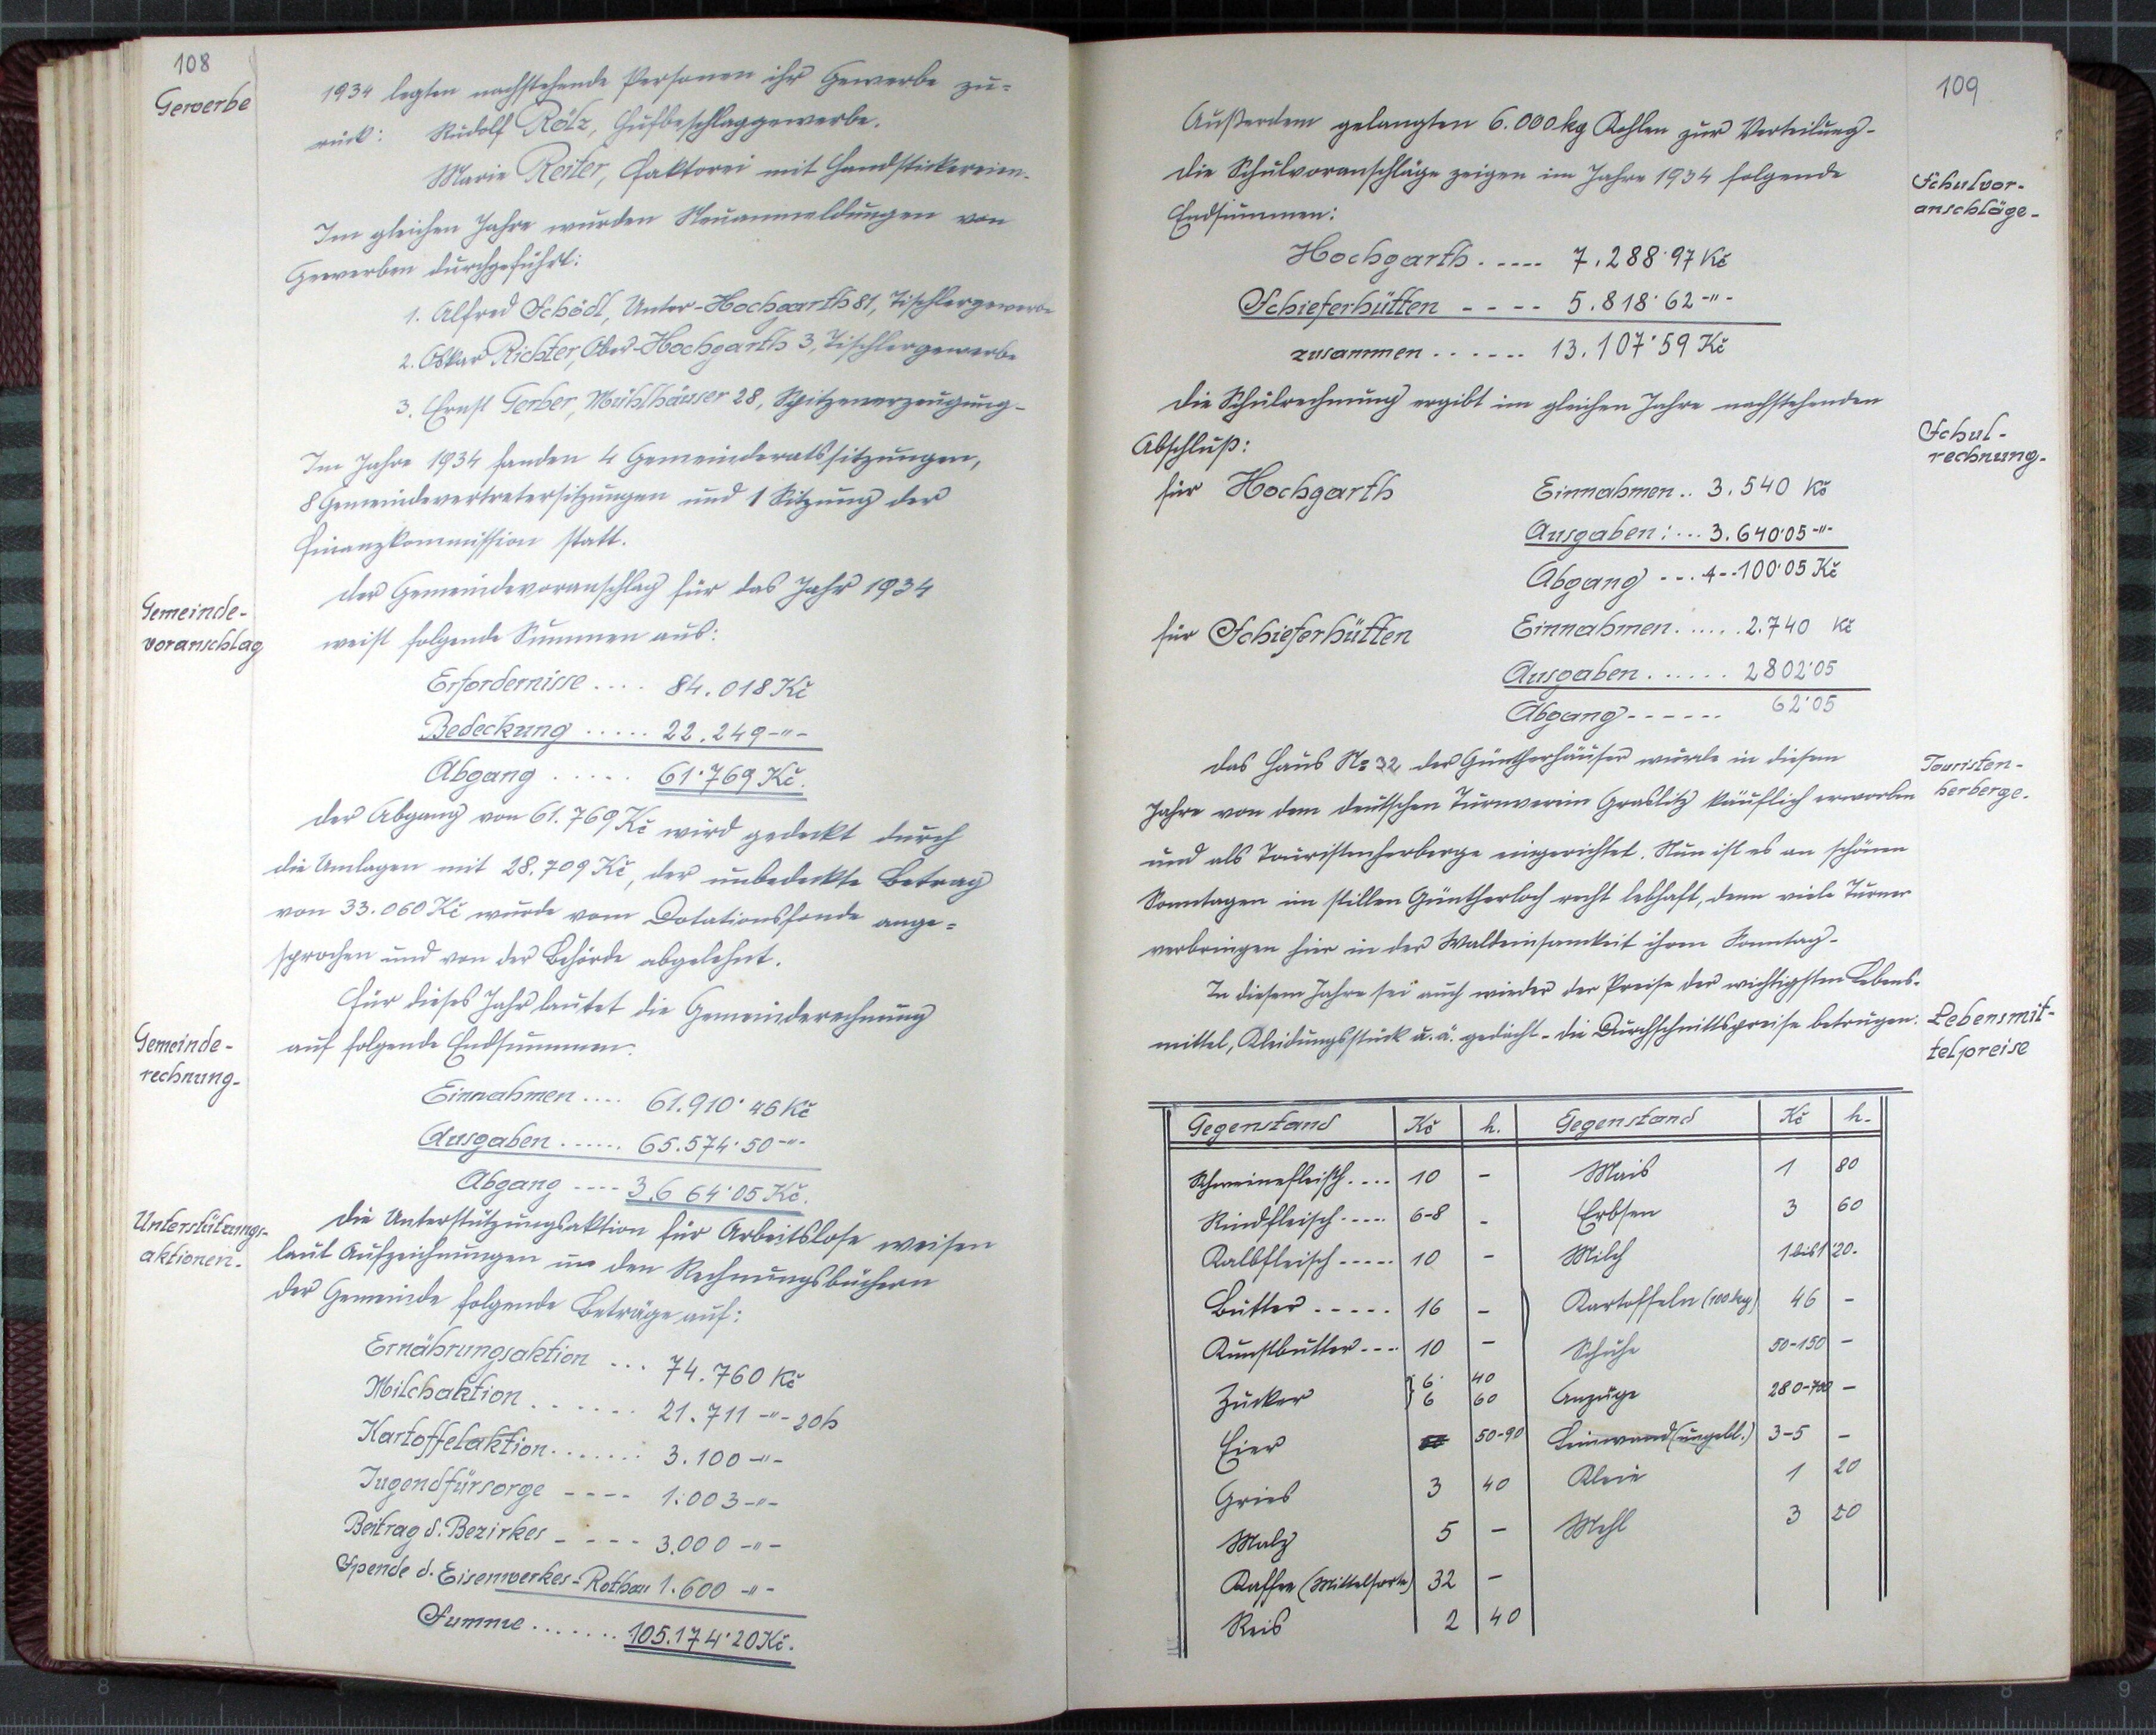 108
Gewerbe
1934 legten nachstehende Personen ihr Gewerbe zu=
rück: Rudolf Rölz, Hufbeschlaggewerbe.
Marie Reiter, Faktorei mit Handstickereien.
Im gleichen Jahre wurden Neuanmeldungen von
Gewerben durchgeführt:
1. Alfred Schödl, Unter-Hochgarth 81, Tischlergewerbe
2. Oskar Richter, Ober-Hochgarth 3, Tischlergewerbe
3. Ernst Gerber, Mühlhäuser 28, Spitzenerzeugung-
Im Jahre 1934 fanden 4 Gemeinderatssitzungen,
8 Gemeindevertretersitzungen und 1 Sitzung der
Finanzkommission statt.
Gemeinde-
voranschlag
Der Gemeindevoranschlag für das Jahr 1934
weist folgende Summen aus:
Erfordernisse .... 84.018 Kč
Bedeckung ..... 22.249 -"-
Abgang ..... 61.769 Kč.
Der Abgang von 61.769 Kč wird gedeckt durch
die Umlagen mit 28.709 Kč, der unbedeckte Betrag
von 33.060 Kč wurde vom Dotationsfonde ange=
sprochen und von der Behörde abgelehnt.
Gemeinde-
rechnung-
Für dieses Jahr lautet die Gemeinderechnung
auf folgende Endsummen:
Einnahmen .... 61.910·45 Kč
Ausgaben ...... 65.574·50 -"-
Abgang ---- 3.664·05 Kč.
Unterstützungs-
aktionen.
Die Unterstützungsaktion für Arbeitslose weisen
laut Aufzeichnungen in den Rechnungsbüchern
der Gemeinde folgende Beträge auf:
Ernährungsaktion ... 74.760 Kč
Milchaktion ...... 21.711 -"- 20h
Kartoffelaktion ....... 3.100 -"-
Jugendfürsorge ---- 1.003 -"-
Beitrag d. Bezirkes ----- 3.000 -"-
Spende d. Eisenwerkes-Rothau 1.600 -"-
Summe ....... 105.174·20 Kč.
109
Außerdem gelangten 6.000 kg Kohlen zur Verteilung-
Schulvor-
anschläge-
Die Schulvoranschläge zeigen im Jahre 1934 folgende
Endsummen:
Hochgarth . ---- 7.288·97 Kč
Schieferhütten ---- 5.818·62 -"-
zusammen ...... 13.107·59 Kč
Schul-
rechnung-
Die Schulrechnung ergibt im gleichen Jahre nachstehenden
Abschluß:
für Hochgarth Einnahmen .. 3.540 Kč
Ausgaben: ... 3.640·05 -"-
Abgang --- 100·05 Kč
für Schieferhütten Einnahmen ...... 2.740 Kč
Ausgaben ...... 2802·05
Abgang ------ 62·05
Touristen-
herberge.
Das Haus No 32 der Güntherhäuser wurde in diesem
Jahre von dem deutschen Turnverein Graslitz käuflich erworben
und als Touristenherberge eingerichtet. Nun ist es an schönen
Sonntagen im stillen Güntherloch recht lebhaft, denn viele Turner
verbringen hier in der Waldeinsamkeit ihren Sonntag-
Lebensmit-
telpreise
In diesem Jahre sei auch wieder der Preise der wichtigsten Lebens-
mittel, Kleidungsstück u. ä. gedacht - Die Durchschnittspreise betrugen:
Gegenstand Kč h. Gegenstand Kč h.
Schweinefleisch .... 10 - Mais 1 80
Rindfleisch ---- 6-8 - Erbsen 3 60
Kalbfleisch ----- 10 - Milch 1 bis 1 20.
Butter ----- 16 - Kartoffeln (100 kg) 46 -
Kunstbutter --- 10 - Schuhe 50-150 -
Zucker 6 40
6 60 Anzüge 280-700 -
Eier 50-90 Leinwand (ungebl.) 3-5 -
Gries 3 40 Kleie 1 20
Malz 5 - Mehl 3 20
Kaffee (Mittelsorte) 32 -
Reis 2 40